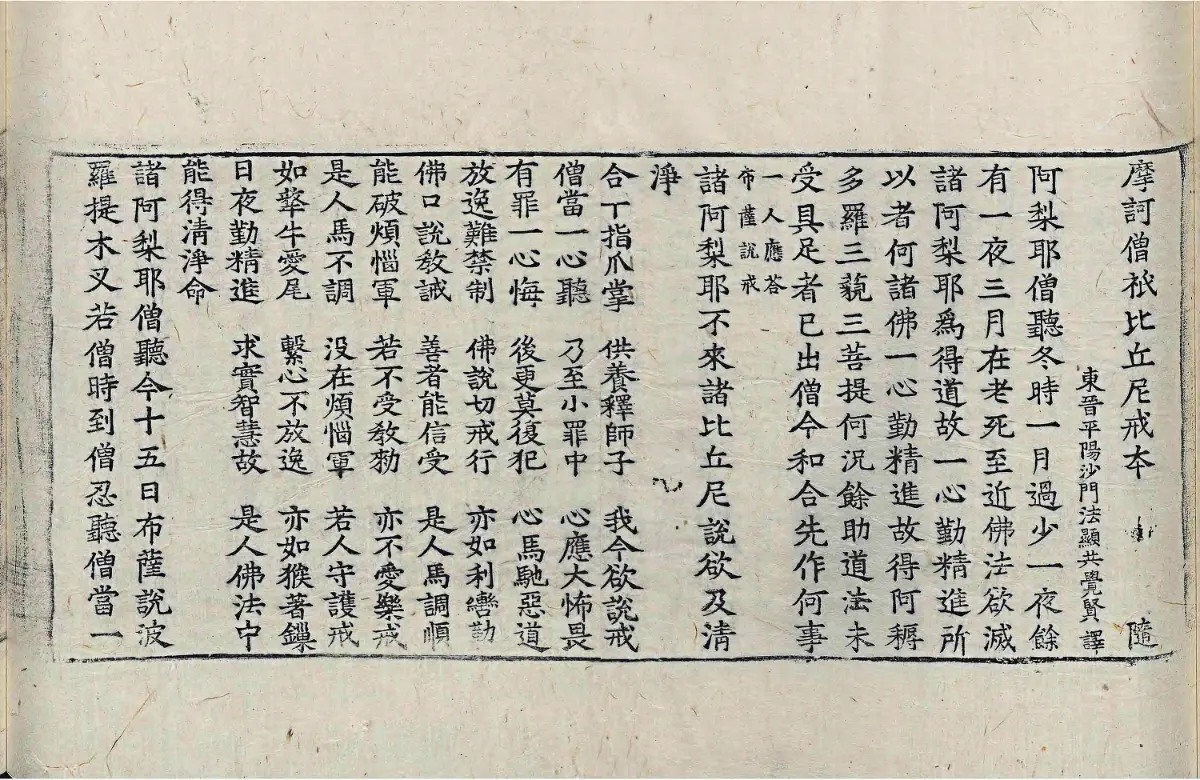 摩訶僧祇比丘尼戒夲 隨
東晉平陽沙門法顯共覺賢譯
阿梨耶僧聽冬時一月過少一夜餘
有一夜三月在老死至近佛法欲滅
諸阿梨耶爲得道故一心勤精進所
以者何諸佛一心勤精進故得阿耨
多羅三藐三菩提何況餘助道法未
受具足者已出僧今和合先作何事
一人應荅
布薩說戒
諸阿梨耶不來諸比丘尼說欲及清
淨
合十指爪掌 供養釋師子 我今欲說戒
僧當一心聽 乃至小罪中 心應大怖畏
有罪一心悔 後更莫復犯 心馬馳惡道
放逸難禁制 佛說切戒行 亦如利轡勒
佛口說教誡 善者能信受 是人馬調順
能破煩惱軍 若不受教勑 亦不愛樂戒
是人馬不調 没在煩惱軍 若人守護戒
如犛牛愛尾 繫心不放逸 亦如猴著鏁
日夜勤精進 求實智慧故 是人佛法中
能得清淨命
諸阿梨耶僧聽今十五日布薩說波
羅提木叉若僧時到僧忍聽僧當一